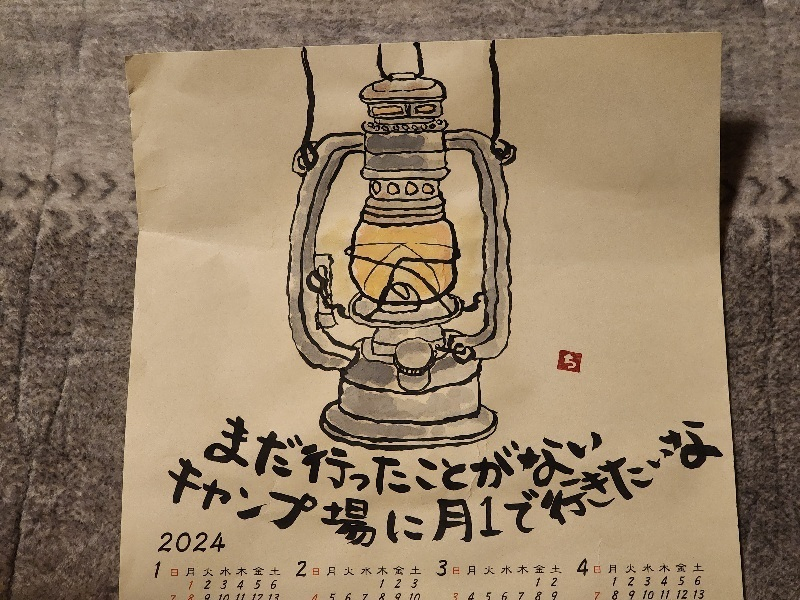 ち
まだ行ったことがない
キャンプ場に月1で行きたいさな
2024
1 日 月 火 水 木 金 土 2 日 月 火 水 木 金 土 3 日 月 火 水 木 金 土 4 日 月 火 水 木 金 土
1 2 3 4 5 6 1 2 3 1 2 1 2 3 4 5 6
7 8 9 10 11 12 13 4 5 6 7 8 9 10 3 4 5 6 7 8 9 7 8 9 10 11 12 13